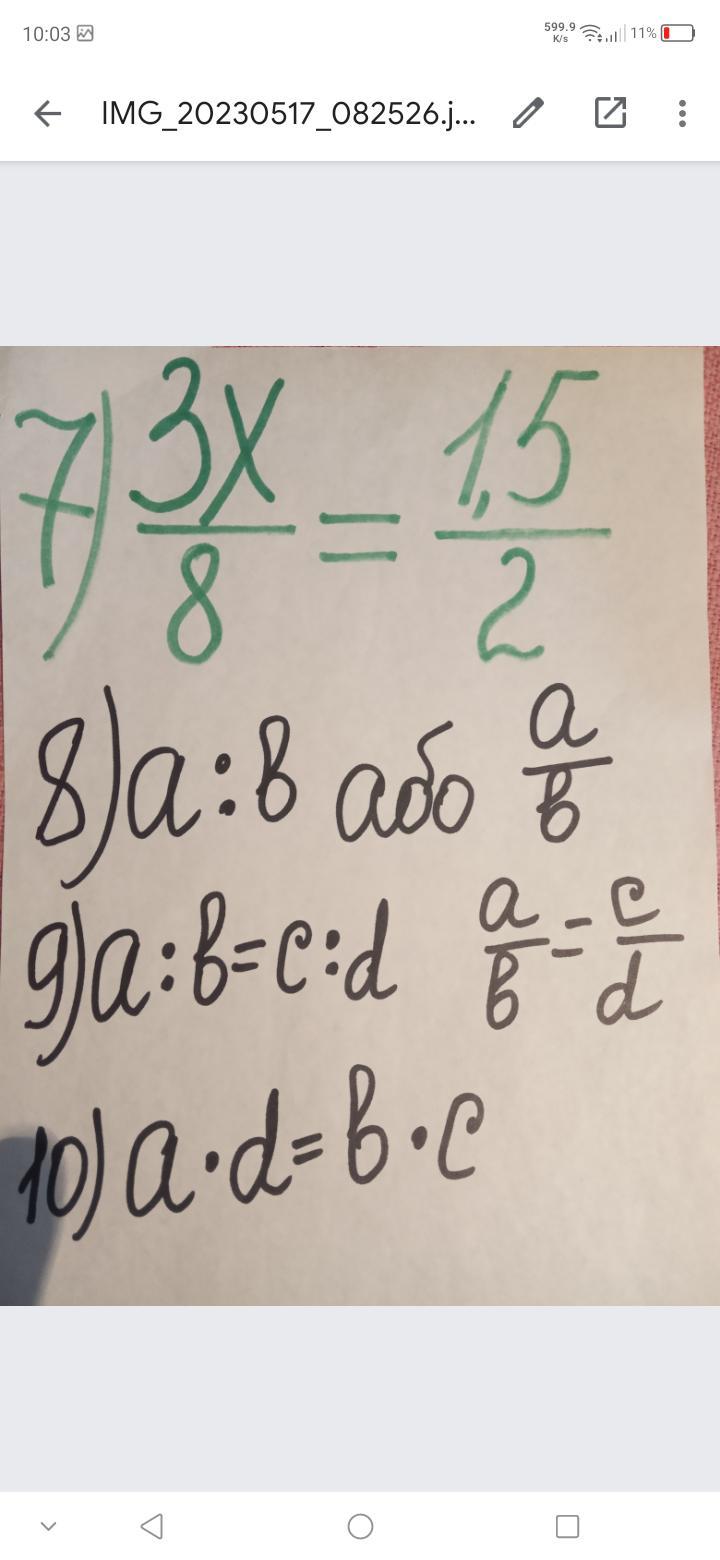 10:03 599.9 K/s 11%
IMG_20230517_082526.j...
7) 3x/8 = 1,5/2
8) a : b або a/b
9) a : b = c : d a/b = c/d
10) a · d = b · c